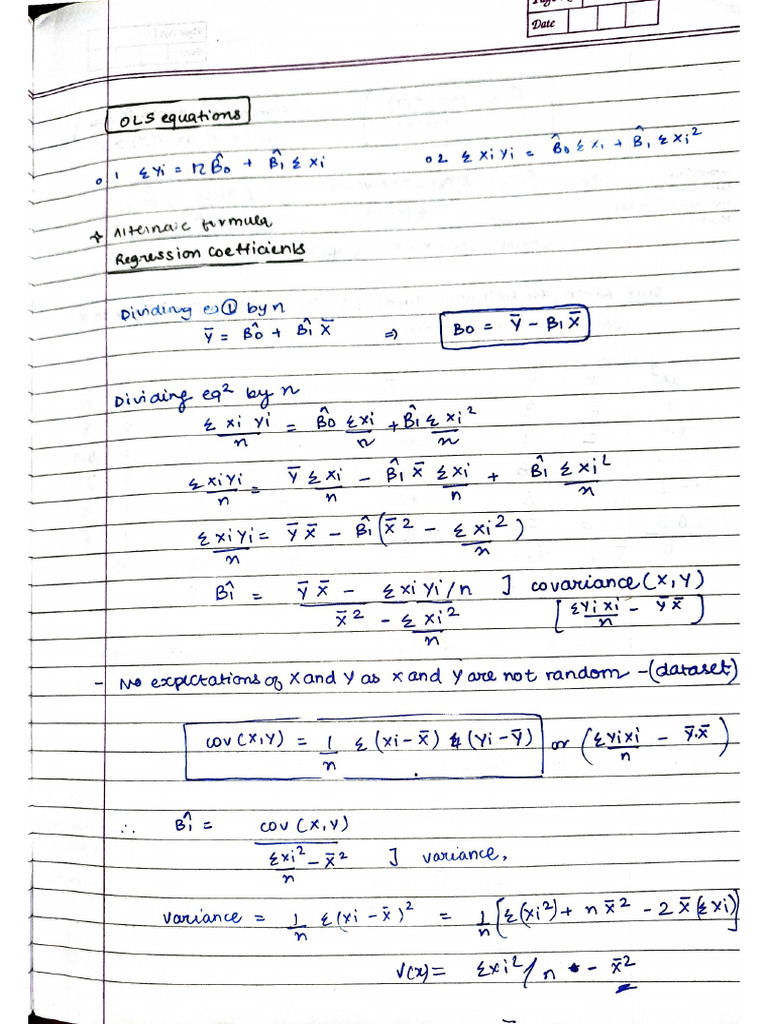 Date
OLS equations
01 Σ Yi = n B̂0 + B̂1 Σ Xi
02 Σ Xi Yi = B̂0 Σ Xi + B̂1 Σ Xi²
* Alternate formula
Regression coefficients
Dividing eq ① by n
Ȳ = B̂0 + B̂1 X̄ ⇒ B0 = Ȳ - B1 X̄
Dividing eq² by n
Σ Xi Yi / n = B̂0 Σ Xi / n + B̂1 Σ Xi² / n
Σ Xi Yi / n = Ȳ Σ Xi / n - B̂1 X̄ Σ Xi / n + B̂1 Σ Xi² / n
Σ Xi Yi / n = Ȳ X̄ - B̂1 (X̄² - Σ Xi² / n)
B̂1 = (Ȳ X̄ - Σ Xi Yi / n) / (X̄² - Σ Xi² / n) ] covariance (X, Y) [Σ Yi Xi / n - Ȳ X̄]
- No expectations of X and Y as X and Y are not random - (dataset)
cov (X, Y) = 1/n Σ (Xi - X̄) (Yi - Ȳ) or (Σ Yi Xi / n - Ȳ.X̄)
∴ B̂1 = cov (X, Y) / (Σ Xi² / n - X̄²) ] variance,
variance = 1/n Σ (Xi - X̄)² = 1/n [Σ (Xi²) + n X̄² - 2 X̄ (Σ Xi)]
V(x) = Σ Xi² / n - X̄²